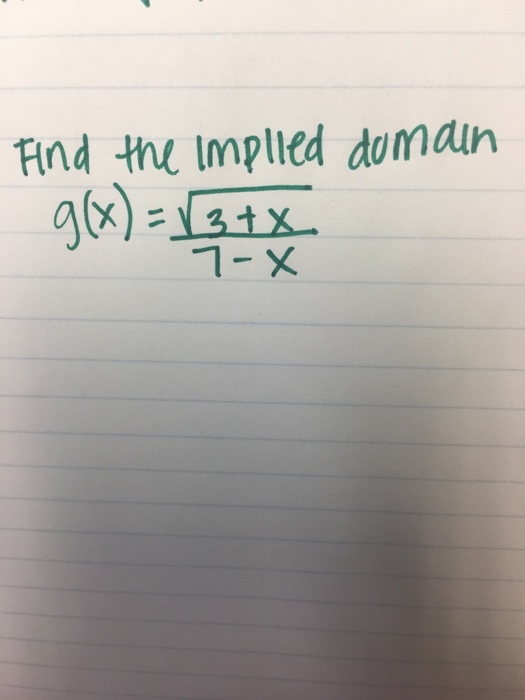 Find the implied domain
g(x) = √3+x
7-x